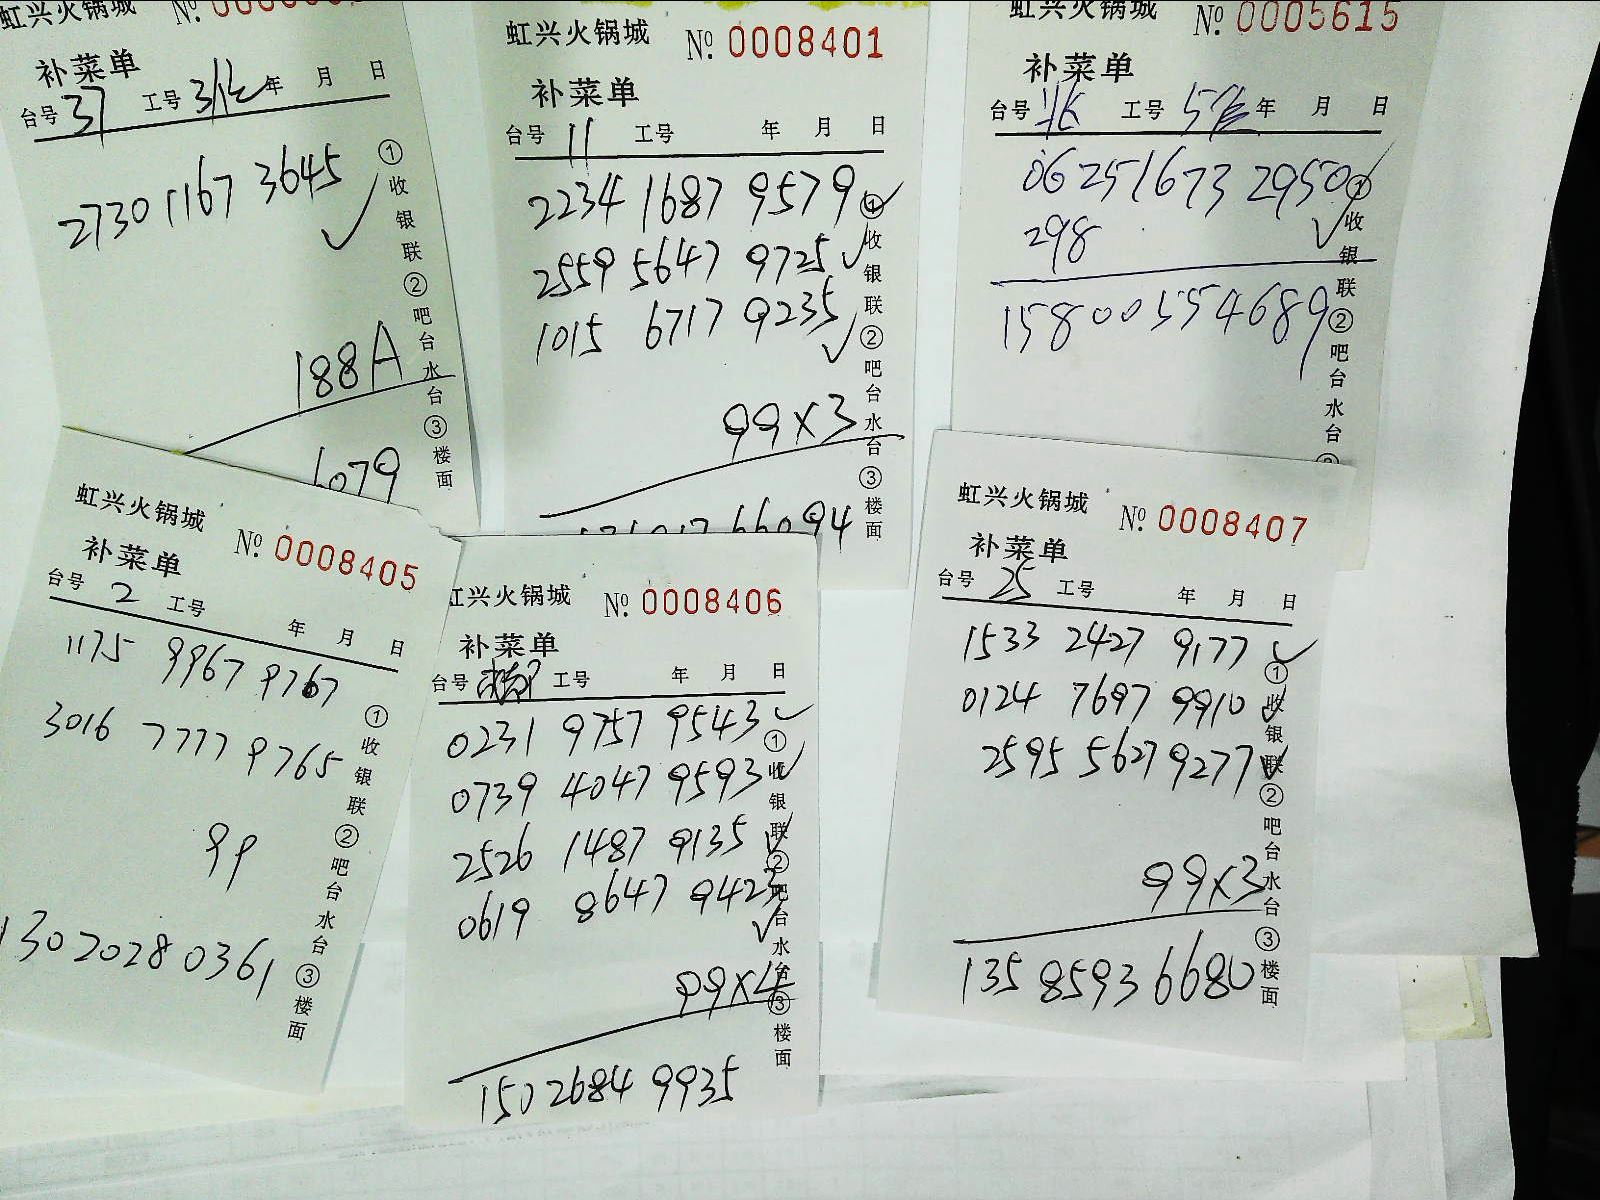 虹兴火锅城 №
补菜单
台号 37 工号 年 月 日
2730 1167 3645
188A
6079
①收银联②吧台水台③楼面
虹兴火锅城 № 0008401
补菜单
台号 11 工号 年 月 日
2234 1687 9579
2559 5647 9725
1015 6717 9235
99×3
①收银联②吧台水台③楼面
虹兴火锅城 № 0005615
补菜单
台号 工号 年 月 日
0625 1673 2950
298
15800554689
①收银联②吧台水台
虹兴火锅城 № 0008405
补菜单
台号 2 工号 年 月 日
1175 9967 9767
3016 7777 9765
99
130 2028 0361
①收银联②吧台水台③楼面
虹兴火锅城 № 0008406
补菜单
台号 工号 年 月 日
0231 9757 9543
0739 4047 9593
2526 1487 9135
0619 8647 9423
99×4
150 2684 9935
①收银联②吧台水台③楼面
虹兴火锅城 № 0008407
补菜单
台号 25 工号 年 月 日
1533 2427 9177
0124 7697 9910
2595 5627 9277
99×3
135 8593 6680
①收银联②吧台水台③楼面